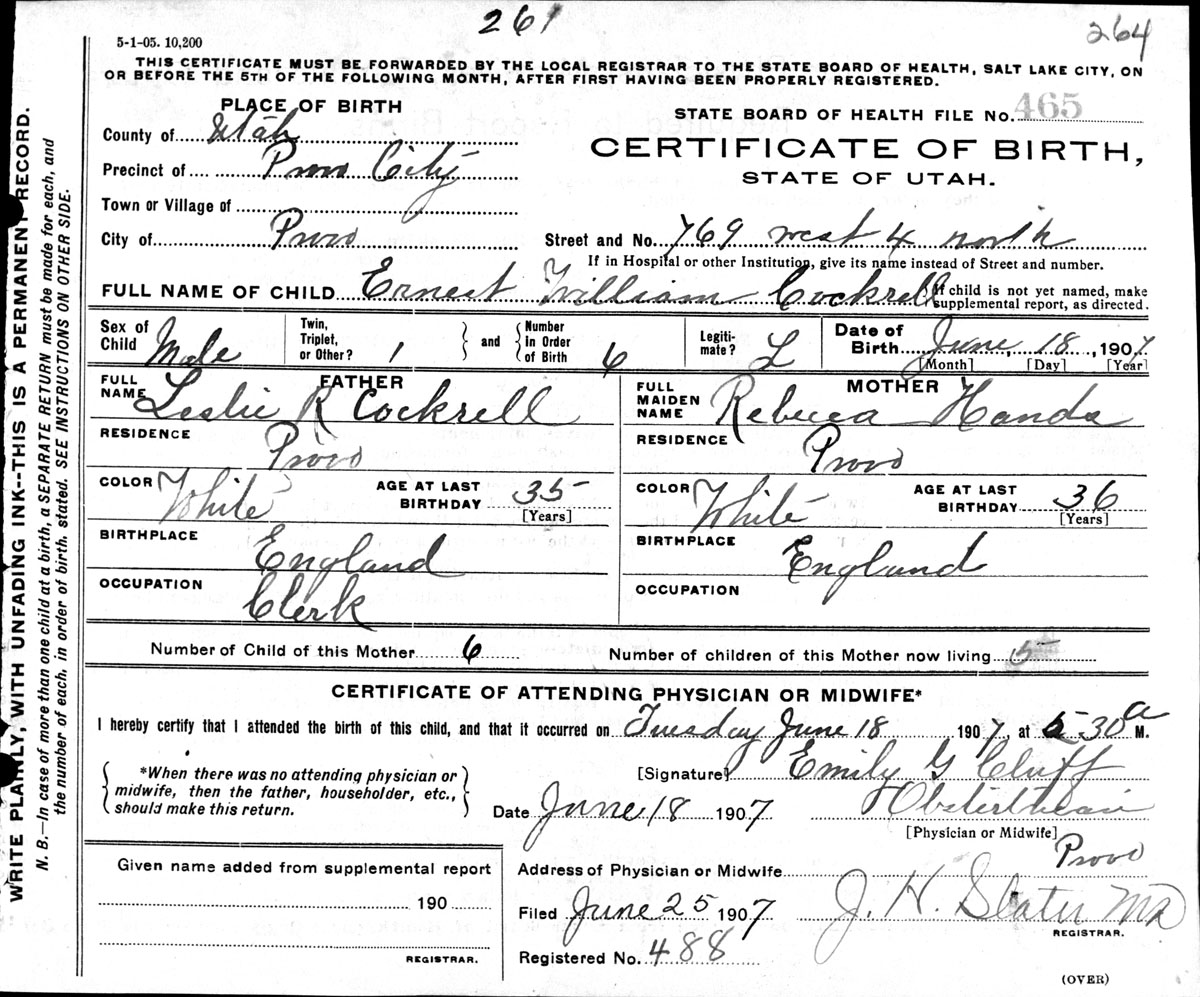 261
264
5-1-05. 10,200
THIS CERTIFICATE MUST BE FORWARDED BY THE LOCAL REGISTRAR TO THE STATE BOARD OF HEALTH, SALT LAKE CITY, ON
OR BEFORE THE 5TH OF THE FOLLOWING MONTH, AFTER FIRST HAVING BEEN PROPERLY REGISTERED.
PLACE OF BIRTH
STATE BOARD OF HEALTH FILE No. 465
County of Utah
CERTIFICATE OF BIRTH,
Precinct of Provo City
STATE OF UTAH.
Town or Village of
City of Provo
Street and No. 769 west 4 north
If in Hospital or other Institution, give its name instead of Street and number.
FULL NAME OF CHILD Ernest William Cockrell
If child is not yet named, make
supplemental report, as directed.
Sex of Child Male
Twin, Triplet, or Other? 1
and
Number in Order of Birth 6
Legiti-mate? L
Date of Birth June 18, 1907
[Month] [Day] [Year]
FATHER
FULL NAME Leslie R Cockrell
MOTHER
FULL MAIDEN NAME Rebecca Hands
RESIDENCE Provo
RESIDENCE Provo
COLOR White AGE AT LAST BIRTHDAY 35 [Years]
COLOR White AGE AT LAST BIRTHDAY 36 [Years]
BIRTHPLACE England
BIRTHPLACE England
OCCUPATION Clerk
OCCUPATION
Number of Child of this Mother 6
Number of children of this Mother now living 5
CERTIFICATE OF ATTENDING PHYSICIAN OR MIDWIFE*
I hereby certify that I attended the birth of this child, and that it occurred on Tuesday June 18 1907, at 5-30 a M.
*When there was no attending physician or
midwife, then the father, householder, etc.,
should make this return.
[Signature] Emily G Cluff
Date June 18 1907
[Physician or Midwife]
Given name added from supplemental report
190
REGISTRAR.
Address of Physician or Midwife Provo
Filed June 25 1907 J. H. Slater MD
REGISTRAR.
Registered No. 488
(OVER)
WRITE PLAINLY, WITH UNFADING INK--THIS IS A PERMANENT RECORD.
N. B.—In case of more than one child at a birth, a SEPARATE RETURN must be made for each, and
the number of each, in order of birth, stated. SEE INSTRUCTIONS ON OTHER SIDE.